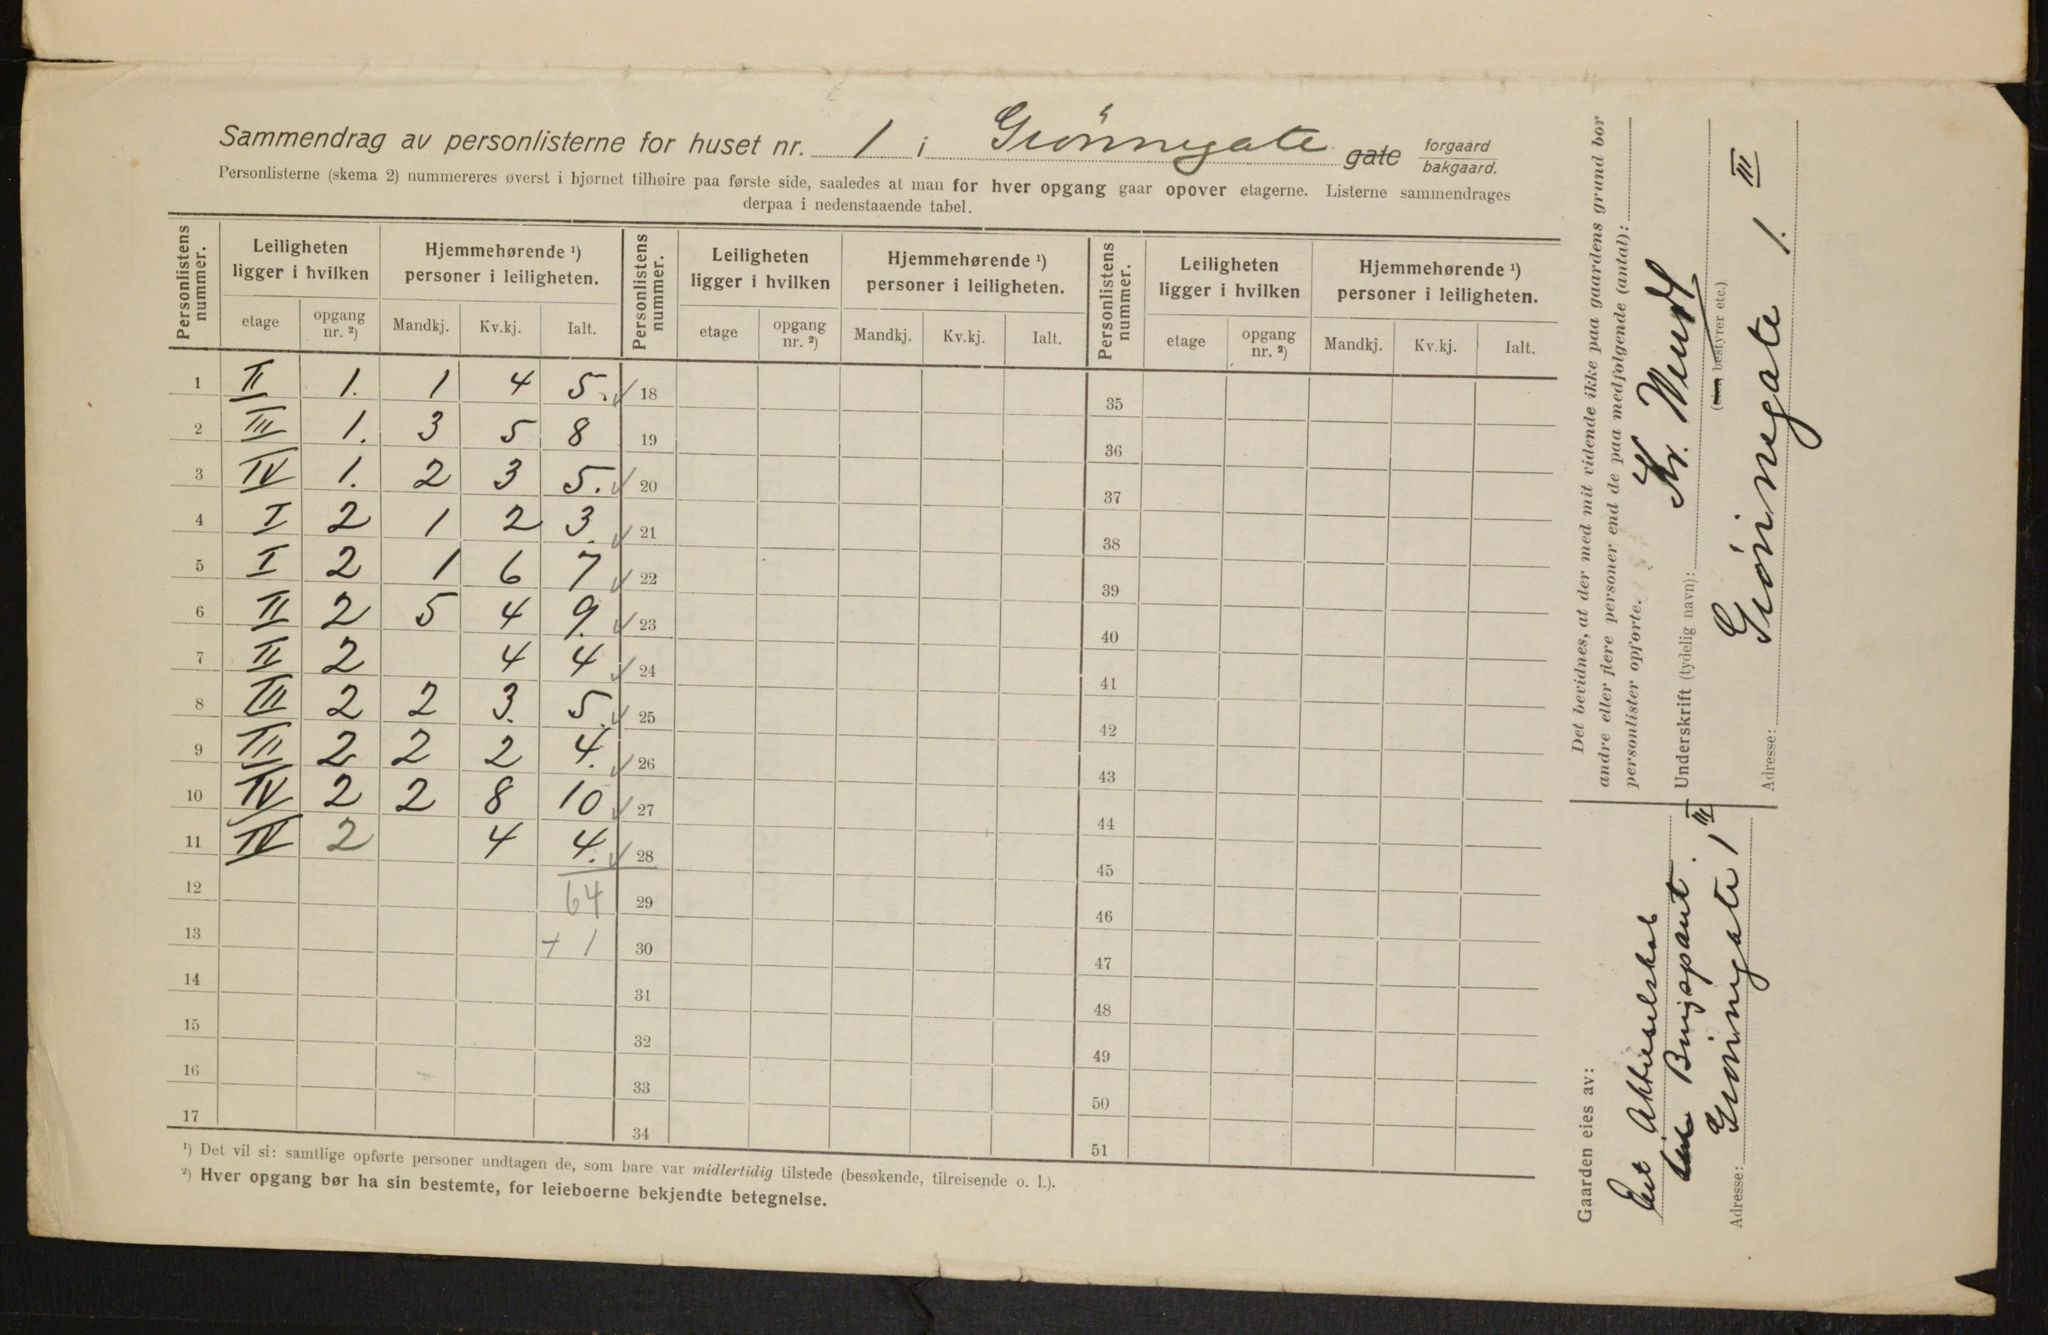 Sammendrag av personlisterne for huset nr. 1 i Grönnegate gate forgaard bakgaard.
Personlisterne (skema 2) nummereres øverst i hjørnet tilhøire paa første side, saaledes at man for hver opgang gaar opover etagerne. Listerne sammendrages
derpaa i nedenstaaende tabel.
Personlistens nummer. Leiligheten ligger i hvilken Hjemmehørende ¹) personer i leiligheten. Personlistens nummer. Leiligheten ligger i hvilken Hjemmehørende ¹) personer i leiligheten. Personlistens nummer. Leiligheten ligger i hvilken Hjemmehørende ¹) personer i leiligheten.
etage opgang nr. ²) Mandkj. Kv.kj. Ialt. etage opgang nr. ²) Mandkj. Kv.kj. Ialt. etage opgang nr. ²) Mandkj. Kv.kj. Ialt.
1 II 1. 1 4 5. ✓ 18 35
2 III 1. 3 5 8 19 36
3 IV 1. 2 3 5. ✓ 20 37
4 I 2 1 2 3. ✓ 21 38
5 I 2 1 6 7 ✓ 22 39
6 II 2 5 4 9. ✓ 23 40
7 II 2 4 4 ✓ 24 41
8 III 2 2 3. 5. ✓ 25 42
9 III 2 2 2 4. ✓ 26 43
10 IV 2 2 8 10 ✓ 27 44
11 IV 2 4 4. ✓ 28 45
12 64 29 46
13 + 1 30 47
14 31 48
15 32 49
16 33 50
17 34 51
¹) Det vil si: samtlige opførte personer undtagen de, som bare var midlertidig tilstede (besøkende, tilreisende o. l.).
²) Hver opgang bør ha sin bestemte, for leieboerne bekjendte betegnelse.
Det bevidnes, at der med mit vidende ikke paa gaardens grund bor
andre eller flere personer end de paa medfølgende (antal):
personlister opførte.
Underskrift (tydelig navn): Kr. Wendt
(eier, bestyrer etc.)
Adresse: Grönnegate 1. III
Gaarden eies av:
Det Aktieselskab
Bingspant.
Adresse: Grönnegate 1 III